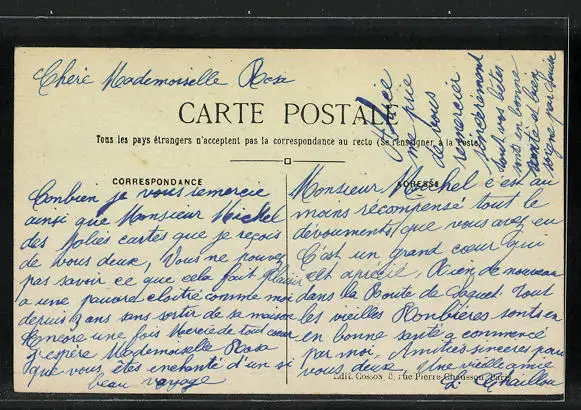 Chère Mademoiselle Rose
CARTE POSTALE
Tous les pays étrangers n'acceptent pas la correspondance au recto (Se renseigner à la Poste)
CORRESPONDANCE
Conbien je vous remercie
ainsi que Monsieur Michel
des jolies cartes que je reçois
de vous deux, Vous ne pouvez
pas savoir ce que cela fait plaisir
a une pauvre cloitré comme moi
depuis 2 ans sans sortir de sa maison
Encore une fois Merci de tout cœur
J'espère Mademoiselle Rose
que vous êtes enchanté d'un si
beau voyage
ADRESSE
Monsieur Michel c'est au
moins récompensé tout le
dévouments que vous avez eu
C'est un grand cœur qui
est aprécié, Rien de nouveau
dans la Route de Tout
les vieilles sont en
en bonne santé a commencé
par moi, Amitiés sinceres pour
vous deux, Une vieille amie
Edit. Cosson, 8, rue Pierre-Chausson, Paris
Alice
me prie
de vous
remercier
sincèrement
tout vos bêtes
sont en bonne
santé et bien
soigné par